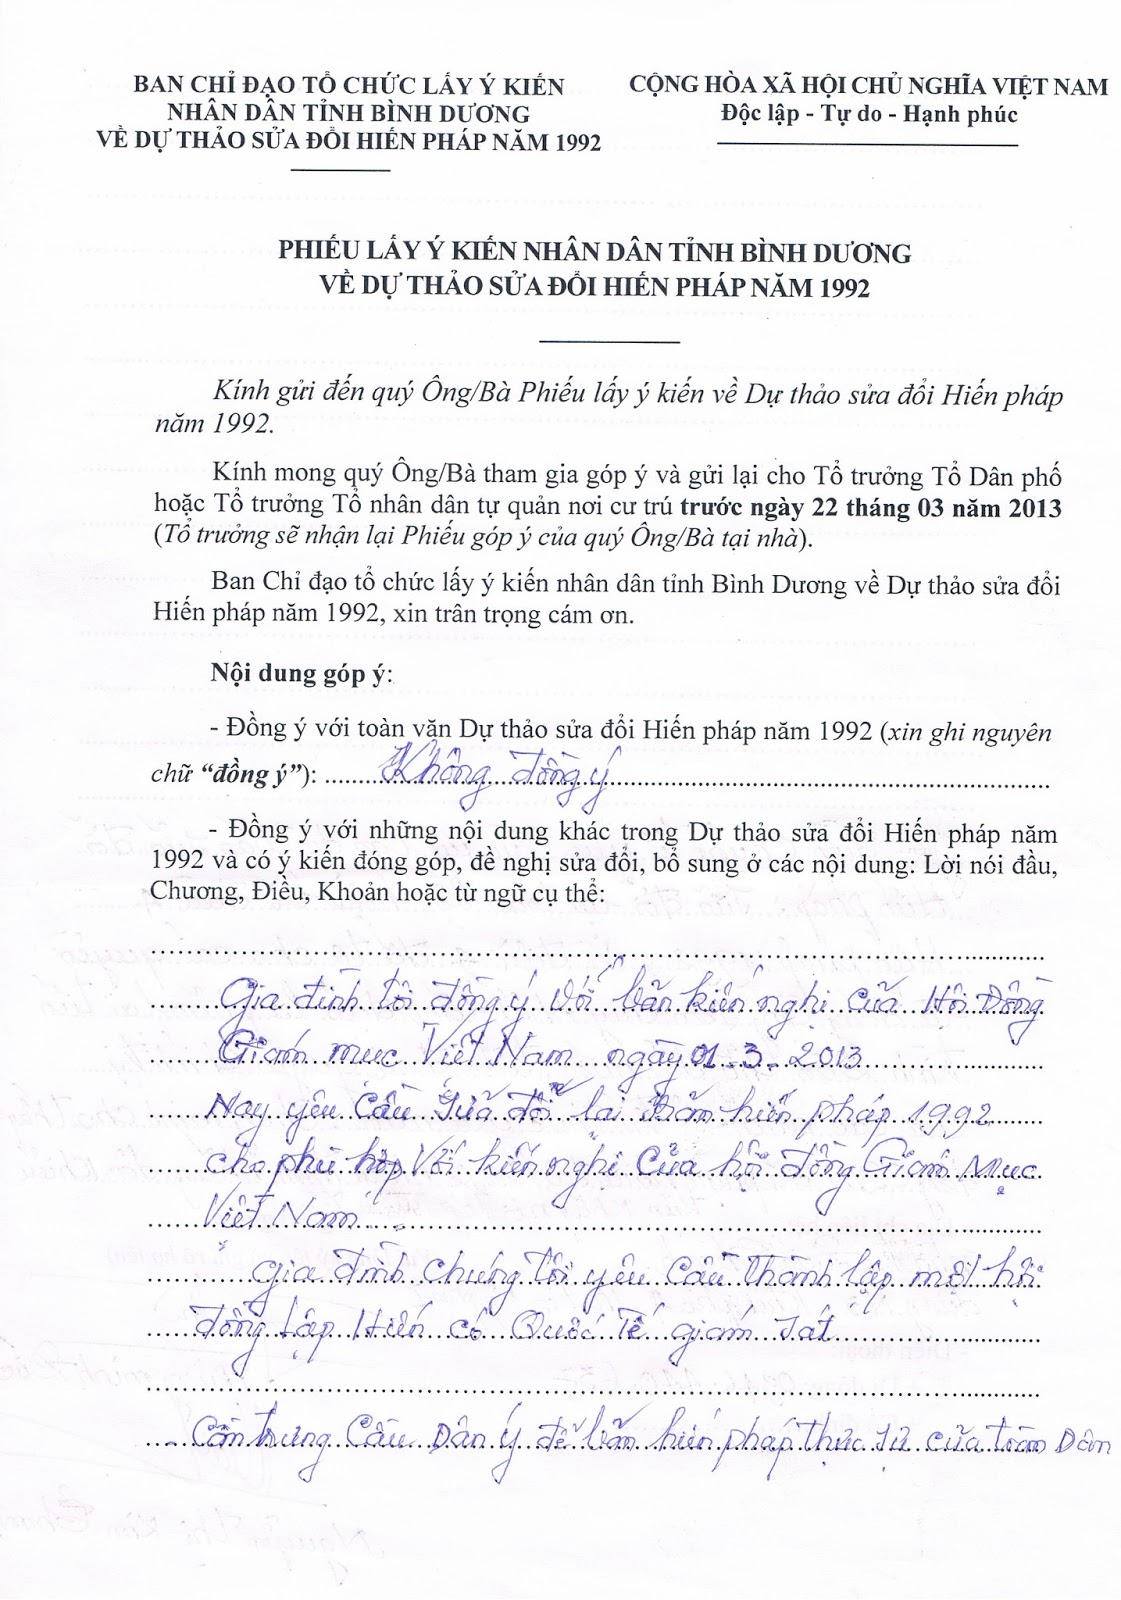 BAN CHỈ ĐẠO TỔ CHỨC LẤY Ý KIẾN
NHÂN DÂN TỈNH BÌNH DƯƠNG
VỀ DỰ THẢO SỬA ĐỔI HIẾN PHÁP NĂM 1992
CỘNG HÒA XÃ HỘI CHỦ NGHĨA VIỆT NAM
Độc lập - Tự do - Hạnh phúc
PHIẾU LẤY Ý KIẾN NHÂN DÂN TỈNH BÌNH DƯƠNG
VỀ DỰ THẢO SỬA ĐỔI HIẾN PHÁP NĂM 1992
Kính gửi đến quý Ông/Bà Phiếu lấy ý kiến về Dự thảo sửa đổi Hiến pháp
năm 1992.
Kính mong quý Ông/Bà tham gia góp ý và gửi lại cho Tổ trưởng Tổ Dân phố
hoặc Tổ trưởng Tổ nhân dân tự quản nơi cư trú trước ngày 22 tháng 03 năm 2013
(Tổ trưởng sẽ nhận lại Phiếu góp ý của quý Ông/Bà tại nhà).
Ban Chỉ đạo tổ chức lấy ý kiến nhân dân tỉnh Bình Dương về Dự thảo sửa đổi
Hiến pháp năm 1992, xin trân trọng cám ơn.
Nội dung góp ý:
- Đồng ý với toàn văn Dự thảo sửa đổi Hiến pháp năm 1992 (xin ghi nguyên
chữ “đồng ý”): Không đồng ý
- Đồng ý với những nội dung khác trong Dự thảo sửa đổi Hiến pháp năm
1992 và có ý kiến đóng góp, đề nghị sửa đổi, bổ sung ở các nội dung: Lời nói đầu,
Chương, Điều, Khoản hoặc từ ngữ cụ thể:
Gia đình tôi đồng ý với bản kiến nghị của Hội Đồng
Giám mục Việt Nam ngày 01-3-2013
Nay yêu cầu sửa đổi lại hiến pháp 1992
cho phù hợp với kiến nghị của hội đồng Giám Mục
Việt Nam
Gia đình chúng tôi yêu cầu thành lập một hội
đồng Lập Hiến có Quốc Tế giám sát
- Cần trưng Cầu Dân ý để bản hiến pháp thực sự của toàn Dân